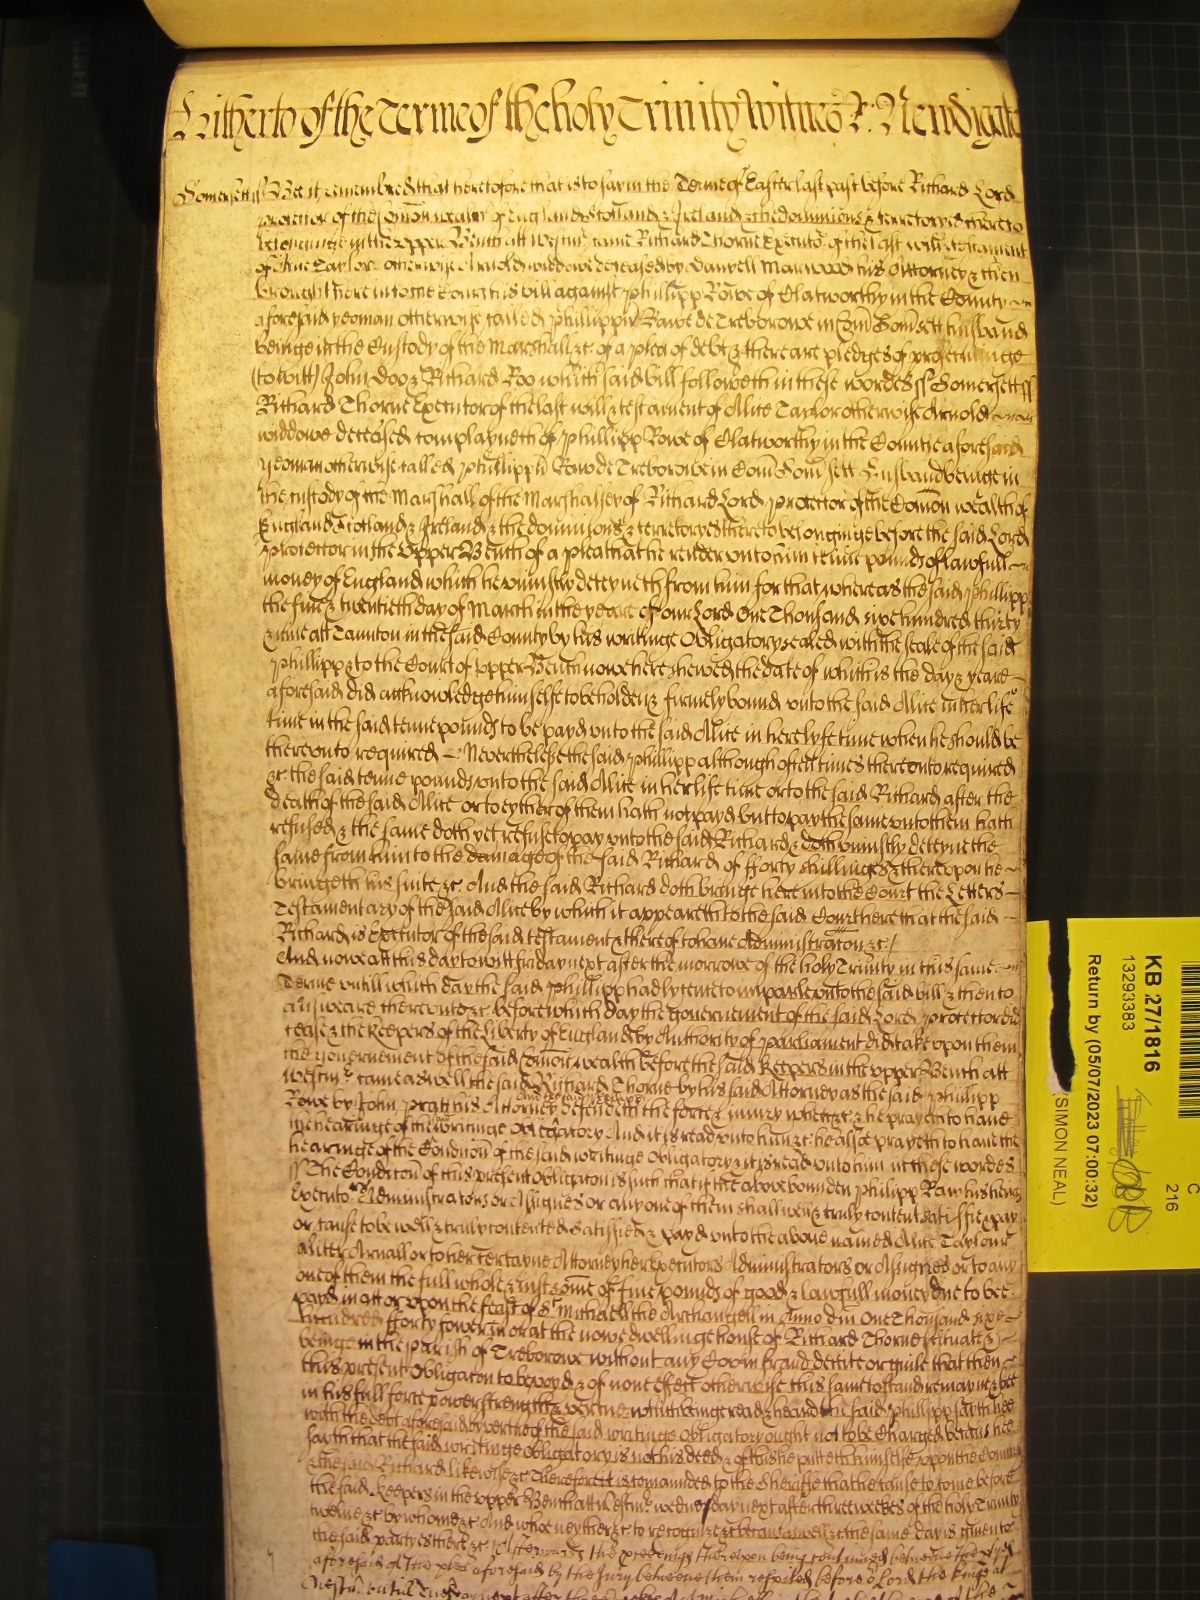 Hitherto of the Terme of the holy Trinity Witnes R: Newdigate
Somersett ss Bee it remembred that heretofore that is to say in the Terme of Easter last past before Richard Lord
protector of the Comon wealth of England Scotland & Ireland & the dominions & terretoryes thereto
belonginge in the upper Bench att Westmr came Richard Thorne Executor of the last will & testament
of Alice Taylor otherwise Arnold widdowe deceased by Danyell his Attorney & then
brought here into the Court his bill against Phillipp Rawe of Clatworthy in the County
aforesaid yeoman otherwise called Phillippu Rawe de Treborowe in Com Somsett husband
beinge in the Custody of the Marshall &c of a plea of debt & there are pledges of prosecutinge
(to witt) John Doo & Richard Roo which said bill followeth in these wordes ss Somersett ss
Richard Thorne Executor of the last will & testament of Alice Taylor otherwise Arnold
widdowe deceased complayneth of Phillipp Rowe of Clatworthy in the Countie aforesaid
yeoman otherwise called Phillippu Rawe de Treborowe in Com Somsett husband beinge in
the custody of the Marshall of the Marshalsey of Richard Lord protector of the Comon wealth of
England Scotland & Ireland & the dominions & terretoryes thereto belonginge before the said Lord
protector in the Upper Bench of a plea that he render unto him tenne pounds of lawfull
money of England which he uniustly deteyneth from him for that whereas the said Phillipp
the five & twentieth day of March in the yeare of our Lord One Thousand sixe hundred thirty
& nine att Taunton in the said County by his writinge Obligatory sealed with the seale of the said
Phillipp & to the Court of upper Bench nowe here shewed the date of which is the day & yeare
aforesaid did acknowledge himselfe to be holden & firmely bound unto the said Alice in her life
time in the said tenne pounds to be payd unto the said Alice in here lyfe tyme when he should be
thereunto required Neverthelesse the said Phillipp although often times thereunto required
&c the said tenne pounds unto the said Alice in her life time or to the said Richard after the
death of the said Alice or to eyther of them hath not payd but to pay the same unto them hath
refused & the same doth yet refuse to pay unto the said Richard & doth uniustly deteyne the
same from him to the damage of the said Richard of fforty shillinges & thereupon he
bringeth his suite &c And the said Richard doth bringe here into the Court the Letters
Testamentary of the said Alice by which it appeareth to the said Court here that the said
Richard is Executor of the said testament & thereof to have Administration &c
And nowe att this day to witt friday next after the morrowe of the holy Trinity in this same
Terme untill which day the said Phillipp had lycence to imparle unto the said bill & then to
answeare thereunto &c before which day the governement of the said Lord protector did
cease & the Keepers of the Liberty of England by Authority of parliament did take upon them
the governement of the said Comon wealth before the said Keepers in the upper Bench att
Westmr came aswell the said Richard Thorne by his said Attorney as the said Phillipp
And the said Phillipp
Rowe by John Pratt his Attorney defendeth the force & iniury when &c & he prayeth to have
the hearinge of the writinge Obligatory And it is read unto him &c he allsoe prayeth to have the
hearinge of the Condicon of the said writinge Obligatory & it is read unto him in these wordes
ss The Condicon of this present Obligacon is such that if the above bounden Philipp Raw his heirs
Executors Administrators or Assignes or any one of them shall well & truly content satisfie & pay
or cause to be well & truly contented satisfied & payd unto the above named Alice Taylour
Arnall or to her certayne Attorney her Executors Administrators or Assignes or to any
one of them the full whole & iust some of five pounds of good & lawfull money due to bee
payd in att or upon the feast of St Michaell the Archangell in Anno dni One Thousand sixe
hundred fforty fower in or at the nowe dwellinge house of Richard Thorne scituate &
beinge in the parish of Treborowe without any Covin fraud deceite or guile that then
this present Obligacon to be voyd & of none effect otherwise this same to stand remayne & bee
in his full force power strength & vertue which beinge read & heard the said Phillipp sayth hee
with the debt aforesaid by vertue of the said writinge Obligatory ought not to be Charged because hee
sayth that the said writinge Obligatory is not his deed & of this he putteth himselfe upon the Countrey
& the said Richard likewise &c Therefore it is comanded to the Sheriffe that he cause to come before
the said Keepers in the upper Bench att Westmr wednesday next after three weekes of the holy Trinity
twelve &c by whome &c And whoe neyther &c to recognize &c because aswell &c the same day is given to
the said partyes there &c Afterwards the procedings thereupon being continued betweene the ptyes
aforesaid of the plea aforesaid by the Jury betweene them respited before or Lord the Kinge at
KB 27/1816
13293383
Return by (05/07/2023 07:00:32)
(SIMON NEAL)
216
C